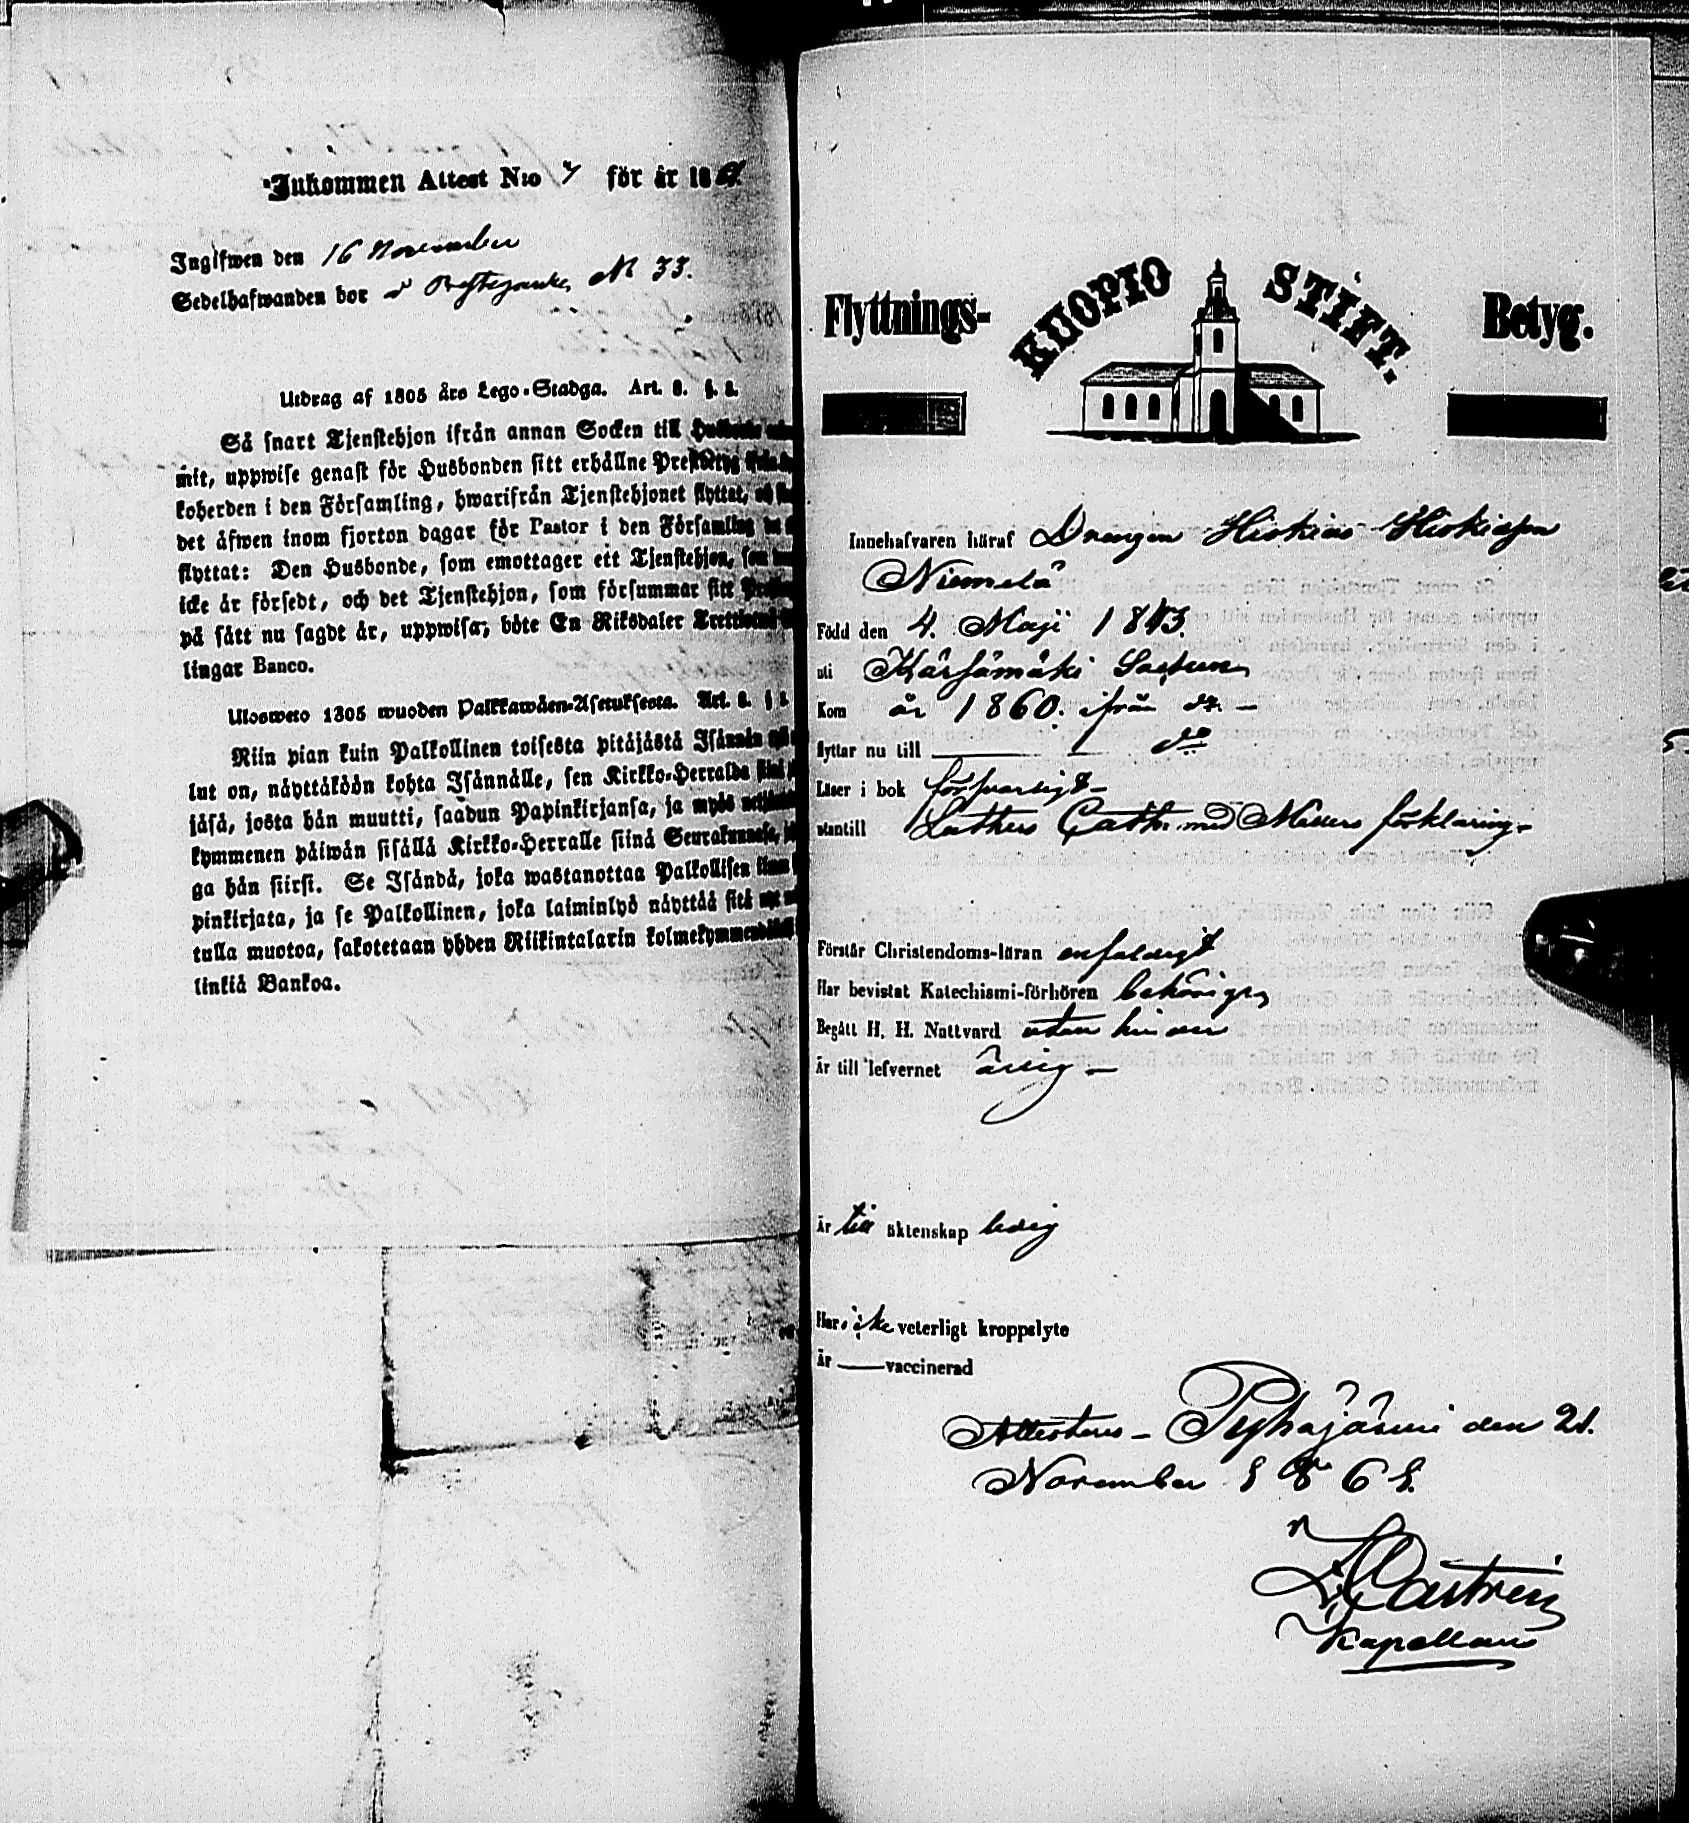 Inkommen Attest N:o 7 för år 1861.
Ingifwen den 16 November
Sedelhafwanden bor N 33.
Utdrag af 1805 års Lego-Stadga. Art. 8. §. 8.
Så snart Tjenstehjon ifrån annan Socken till
mit, uppwise genast för Husbonden sitt erhållne
koherden i den Församling, hwarifrån Tjenstehjonet flyttat,
det äfwen inom fjorton dagar för Pastor i den Församling
flyttat: Den Husbonde, som emottager ett Tjenstehjon, som
icke är försedt, och det Tjenstehjon, som försummar sitt
på sätt nu sagdt är, uppwisa; böte En Riksdaler
lingar Banco.
Ulosweto 1805 wuoden Palkkawäen-Asetuksesta. Art. 8. §
Niin pian kuin Palkollinen toisesta pitäjästä Isännän
lut on, näyttäköön kohta Isännälle, sen Kirkko-Herralda
jäsä, josta hän muutti, saadun Papinkirjansa, ja myös
kymmenen päiwän sisällä Kirkko-Herralle siinä Seurakunnasa,
ga hän siirsi. Se Isändä, joka wastanottaa Palkollisen
pinkirjata, ja se Palkollinen, joka laiminlyö näyttää sitä
tulla muotoa, sakotetaan yhden Riikintalarin
linkiä Bankoa.
Flyttnings- KUOPIO STIFT. Betyg.
Innehafvaren häraf Drängen Hiskias Hiskiasson
Niemelä
Född den 4. Maji 1843.
uti Kärsämäki Socken
Kom år 1860. ifrån do. –
flyttar nu till do
Läser i bok försvarligt –
utantill Luthers Cath. med förklaring –
Förstår Christendoms-läran enfaldigt
Har bevistat Katechismi-förhören behörigen
Begått H. H. Nattvard utan hinder
Är till lefvernet ärlig –
Är till äktenskap ledig
Har icke veterligt kroppslyte
Är — vaccinerad
Attesteras – Pyhäjärvi den 21.
November 1861.
Castrén
Kapellan